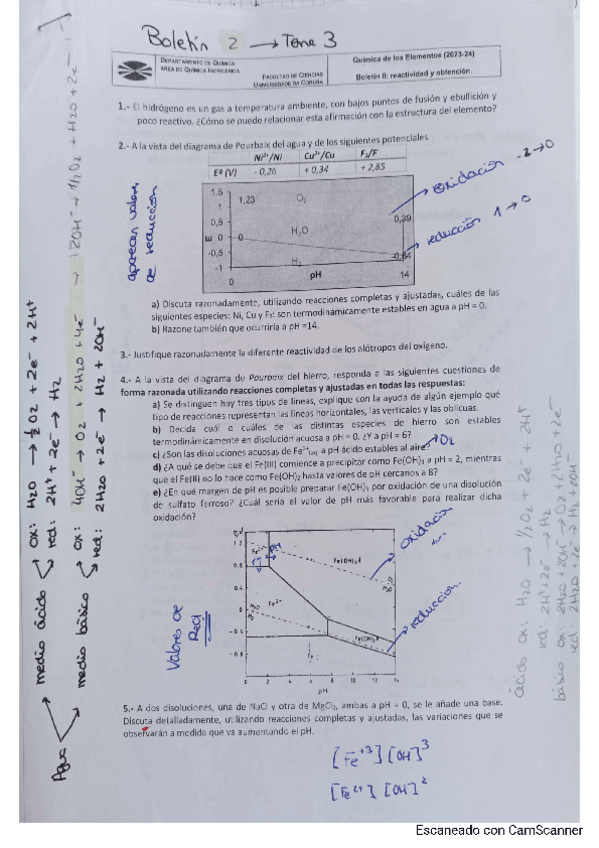 Boletín 2 → Tema 3
DEPARTAMENTO DE QUÍMICA
ÁREA DE QUÍMICA INORGÁNICA
FACULTAD DE CIENCIAS
UNIVERSIDADE DA CORUÑA
Química de los Elementos (2023-24)
Boletín II: reactividad y obtención.
1.- El hidrógeno es un gas a temperatura ambiente, con bajos puntos de fusión y ebullición y
poco reactivo. ¿Cómo se puede relacionar esta afirmación con la estructura del elemento?
2.- A la vista del diagrama de Pourbaix del agua y de los siguientes potenciales
Ni²⁺/Ni Cu²⁺/Cu F₂/F⁻
Eº (V) - 0,26 + 0,34 + 2,85
aparecen valores
de reducción
1,5
1 1,23 O₂
0,5 0,39
E 0 0 H₂O
-0,5 H₂ -0,84
-1 pH
0 14
oxidación -2→0
reducción 1→0
a) Discuta razonadamente, utilizando reacciones completas y ajustadas, cuáles de las
siguientes especies: Ni, Cu y F₂: son termodinámicamente estables en agua a pH = 0.
b) Razone también que ocurriría a pH =14.
3.- Justifique razonadamente la diferente reactividad de los alótropos del oxígeno.
4.- A la vista del diagrama de Pourbaix del hierro, responda a las siguientes cuestiones de
forma razonada utilizando reacciones completas y ajustadas en todas las respuestas:
a) Se distinguen hay tres tipos de líneas, explique con la ayuda de algún ejemplo qué
tipo de reacciones representan las líneas horizontales, las verticales y las oblicuas.
b) Decida cuál o cuáles de las distintas especies de hierro son estables
termodinámicamente en disolución acuosa a pH = 0. ¿Y a pH = 6?
c) ¿Son las disoluciones acuosas de Fe²⁺(aq) a pH ácido estables al aire? → O2
d) ¿A qué se debe que el Fe(III) comience a precipitar como Fe(OH)₃ a pH = 2, mientras
que el Fe(II) no lo hace como Fe(OH)₂ hasta valores de pH cercanos a 8?
e) ¿En qué margen de pH es posible preparar Fe(OH)₃ por oxidación de una disolución
de sulfato ferroso? ¿Cuál sería el valor de pH más favorable para realizar dicha
oxidación?
Valores de
Red
1.2
0.8
0.4
0
-0.4
-0.8
Fe(OH)₃
Fe²⁺
Fe(OH)₂
Fe
0 2 4 6 8 10 12 14
pH
oxidación
reducción
5.- A dos disoluciones, una de NaCl y otra de MgCl₂, ambas a pH = 0, se le añade una base.
Discuta detalladamente, utilizando reacciones completas y ajustadas, las variaciones que se
observarán a medida que va aumentando el pH.
[Fe⁺³] [OH]³
[Fe²⁺] [OH]²
Agua
medio ácido
ox: H2O → ½O2 + 2e⁻ + 2H⁺
red: 2H⁺ + 2e⁻ → H2
medio básico
ox: 4OH⁻ → O2 + 2H2O + 4e⁻ → 2OH⁻ → 1/2O2 + H2O + 2e⁻
red: 2H2O + 2e⁻ → H2 + 2OH⁻
ácido ox: H2O → ½O2 + 2e⁻ + 2H⁺
red: 2H⁺ + 2e⁻ → H2
red: 2H2O + 2e⁻ → H2 + 2OH⁻
Escaneado con CamScanner